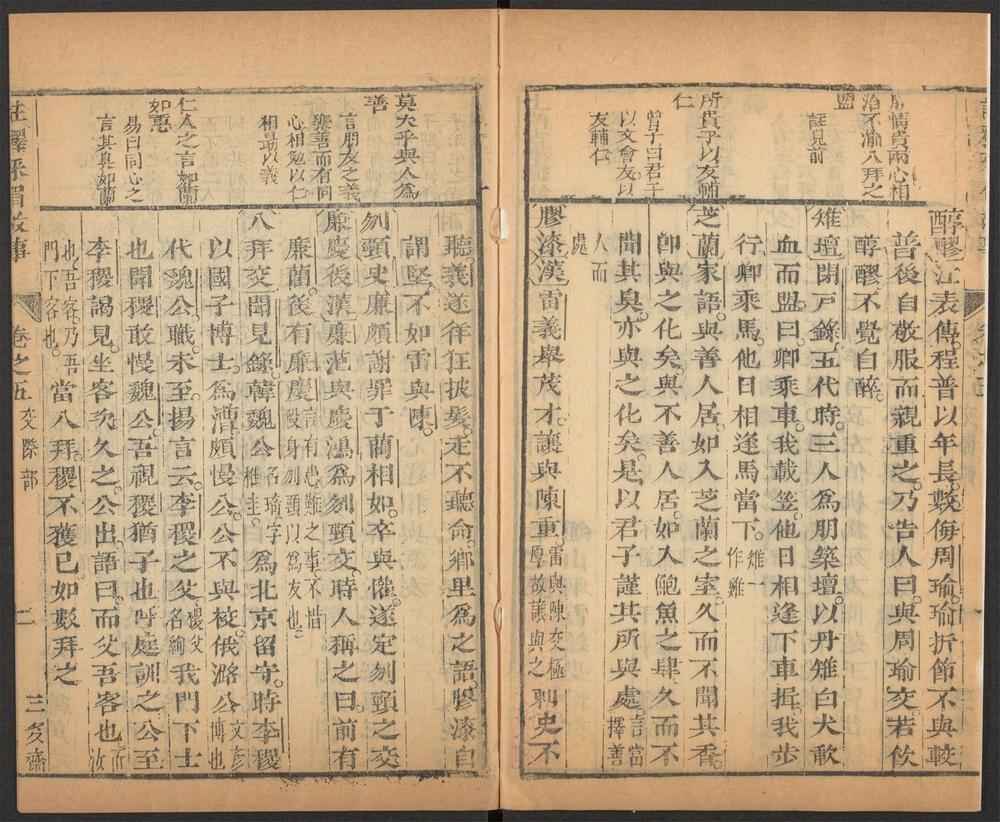 情貴兩心相
治不渝八拜之
盟
註見前
所貴乎以友輔
仁
曾子曰君子
以文會友以
友輔仁
醇醪江表傳程普以年長數侮周瑜瑜折節不與較
普後自敬服而親重之乃告人曰與周瑜交若飲
醇醪不覺自醉
雉壇閉戸錄五代時三人為朋築壇以丹雉白犬歃
血而盟曰卿乘車我載笠他日相逢下車揖我步
行卿乘馬他日相逢馬當下雉一作雞
芝蘭家語與善人居如入芝蘭之室久而不聞其香
即與之化矣與不善人居如入鮑魚之肆久而不
聞其臭亦與之化矣是以君子謹其所與處言當擇善
人而處
膠漆漢雷義舉茂才讓與陳重雷與陳交極厚故讓與之刺史不
莫大乎與人為
善
言朋友之義
樂善而有同
心相勉以仁
相勗以義
仁人之言如蘭
如蕙
易曰同心之
言其臭如蘭
聽義遂徉狂披髮走不聽命鄉里為之語膠漆自
謂堅不如雷與陳
刎頸史廉頗謝罪于藺相如卒與懽遂定刎頸之交
廉慶後漢廉范與慶鴻為刎頸交時人稱之曰前有
廉藺後有廉慶言有患難之事不惜殺身刎頸以為友也
八拜交聞見錄韓魏公名琦字稚圭為北京留守時李稷
以國子博士為漕頗慢公公不與校俄潞公文彥博也
代魏公職未至揚言云李稷之父稷父名絢我門下士
也聞稷敢慢魏公吾視稷猶子也呼庭訓之公至
李稷謁見坐客次久之公出語曰而父吾客也而汝
也吾客乃吾門下客也當八拜稷不獲已如數拜之
註釋采眉故事
卷之五
交際部
二
三多齋